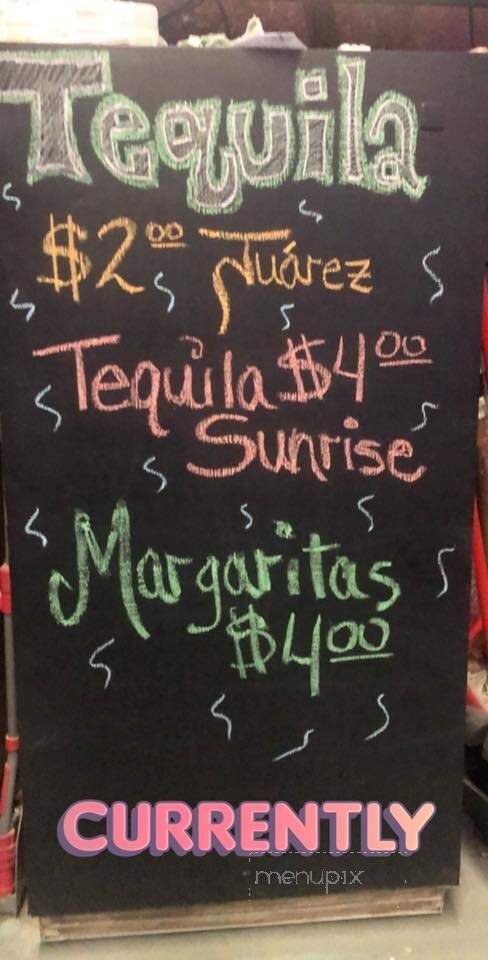 Tequila
$2.00 Juárez
Tequila $4.00
Sunrise
Margaritas
$4.00
CURRENTLY
menupix